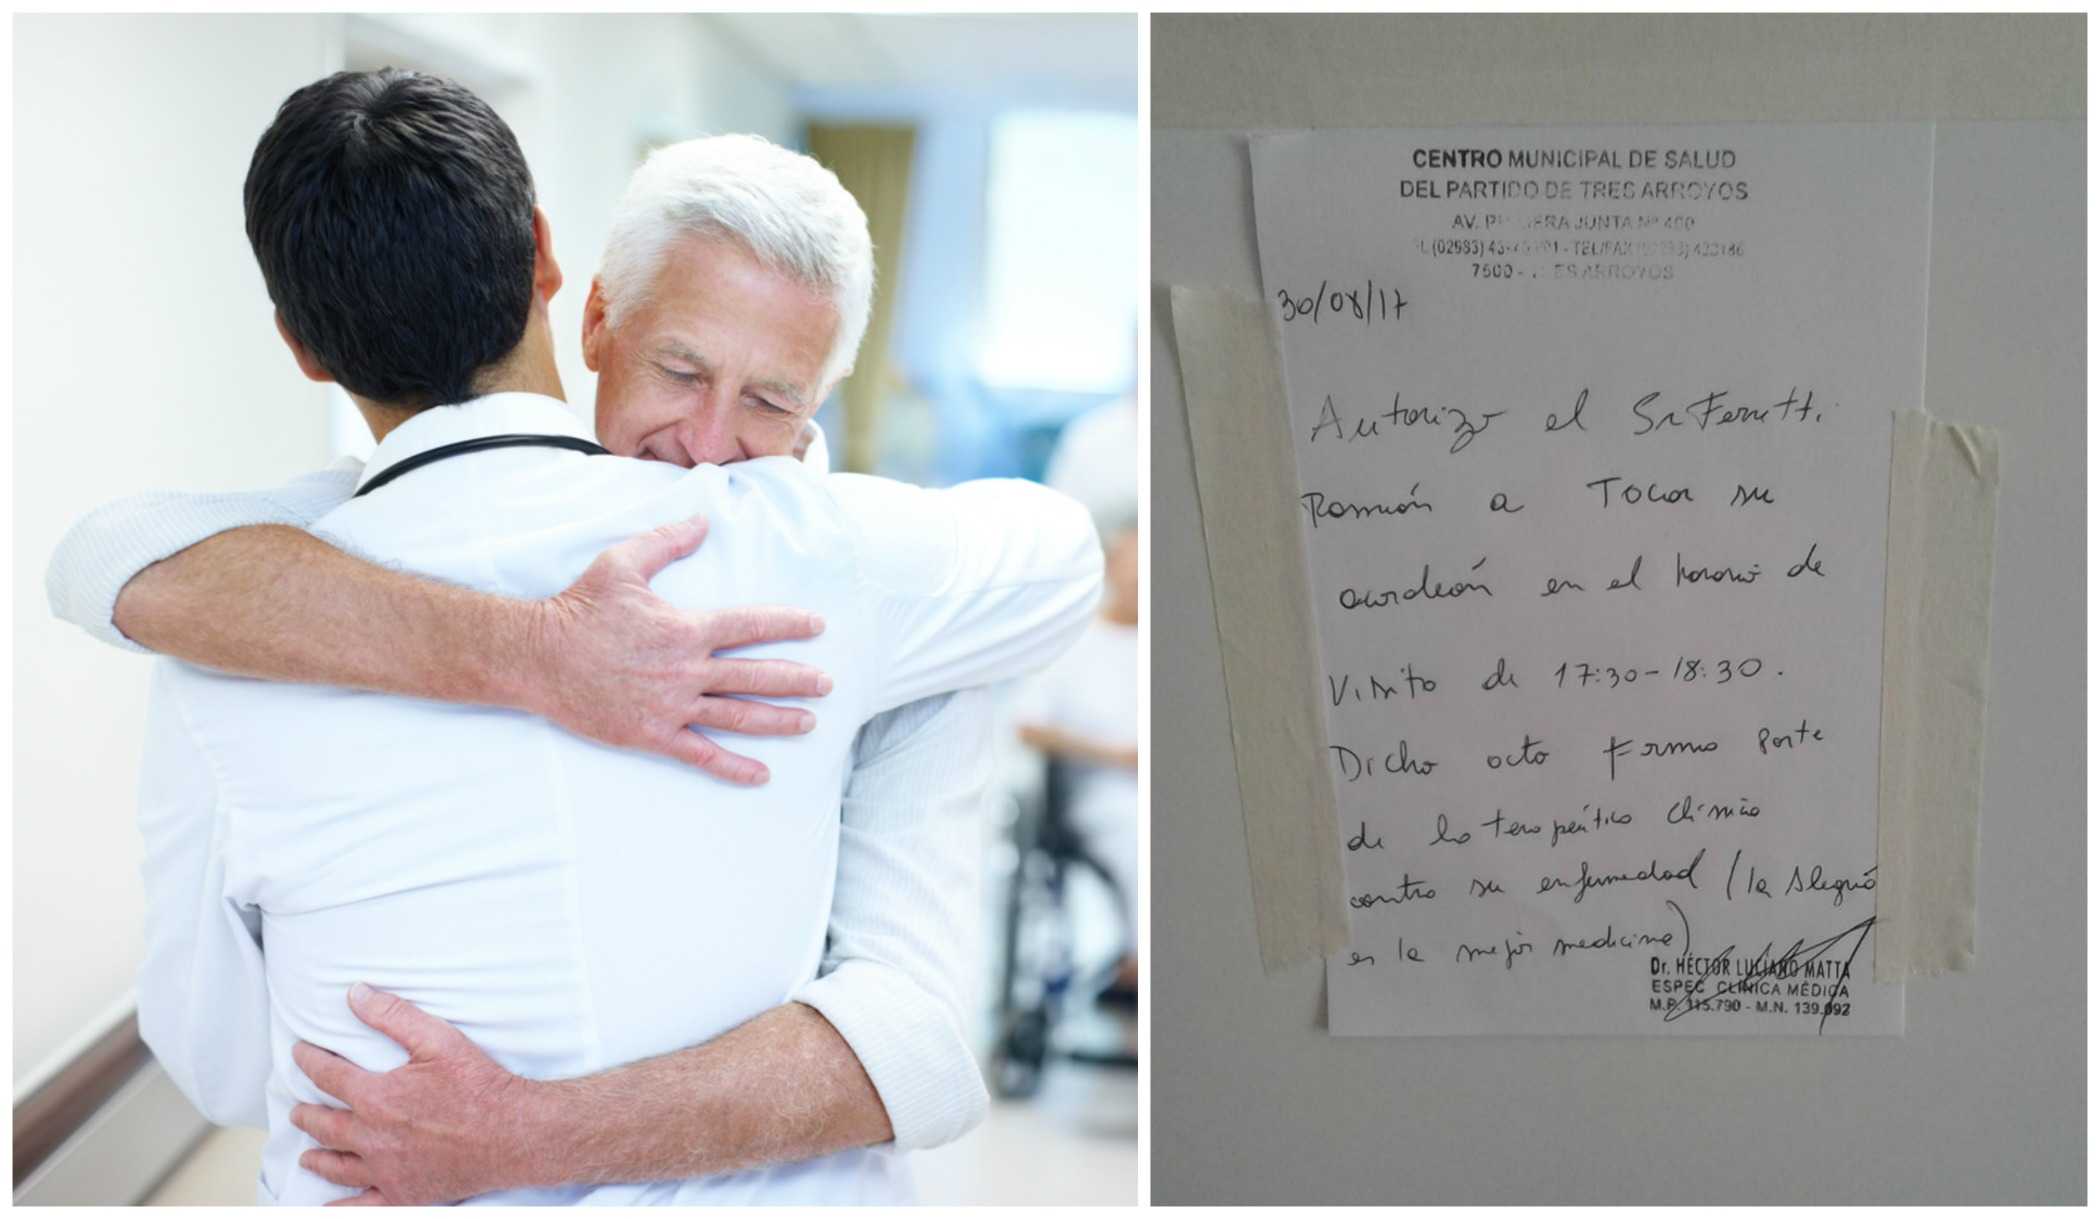 CENTRO MUNICIPAL DE SALUD
DEL PARTIDO DE TRES ARROYOS
AV. PRIMERA JUNTA Nº 400
7500 - TRES ARROYOS
30/08/17
Autorizo el Sr Ferretti
Ramón a Tocar su
acordeón en el horario de
Visita de 17:30-18:30.
Dicho acto forma parte
de la terapéutica clínica
contra su enfermedad (la Alegría
es la mejor medicina)
Dr. HÉCTOR LUCIANO MATTA
ESPEC CLINICA MÉDICA
M.P. 115.790 - M.N. 139.092